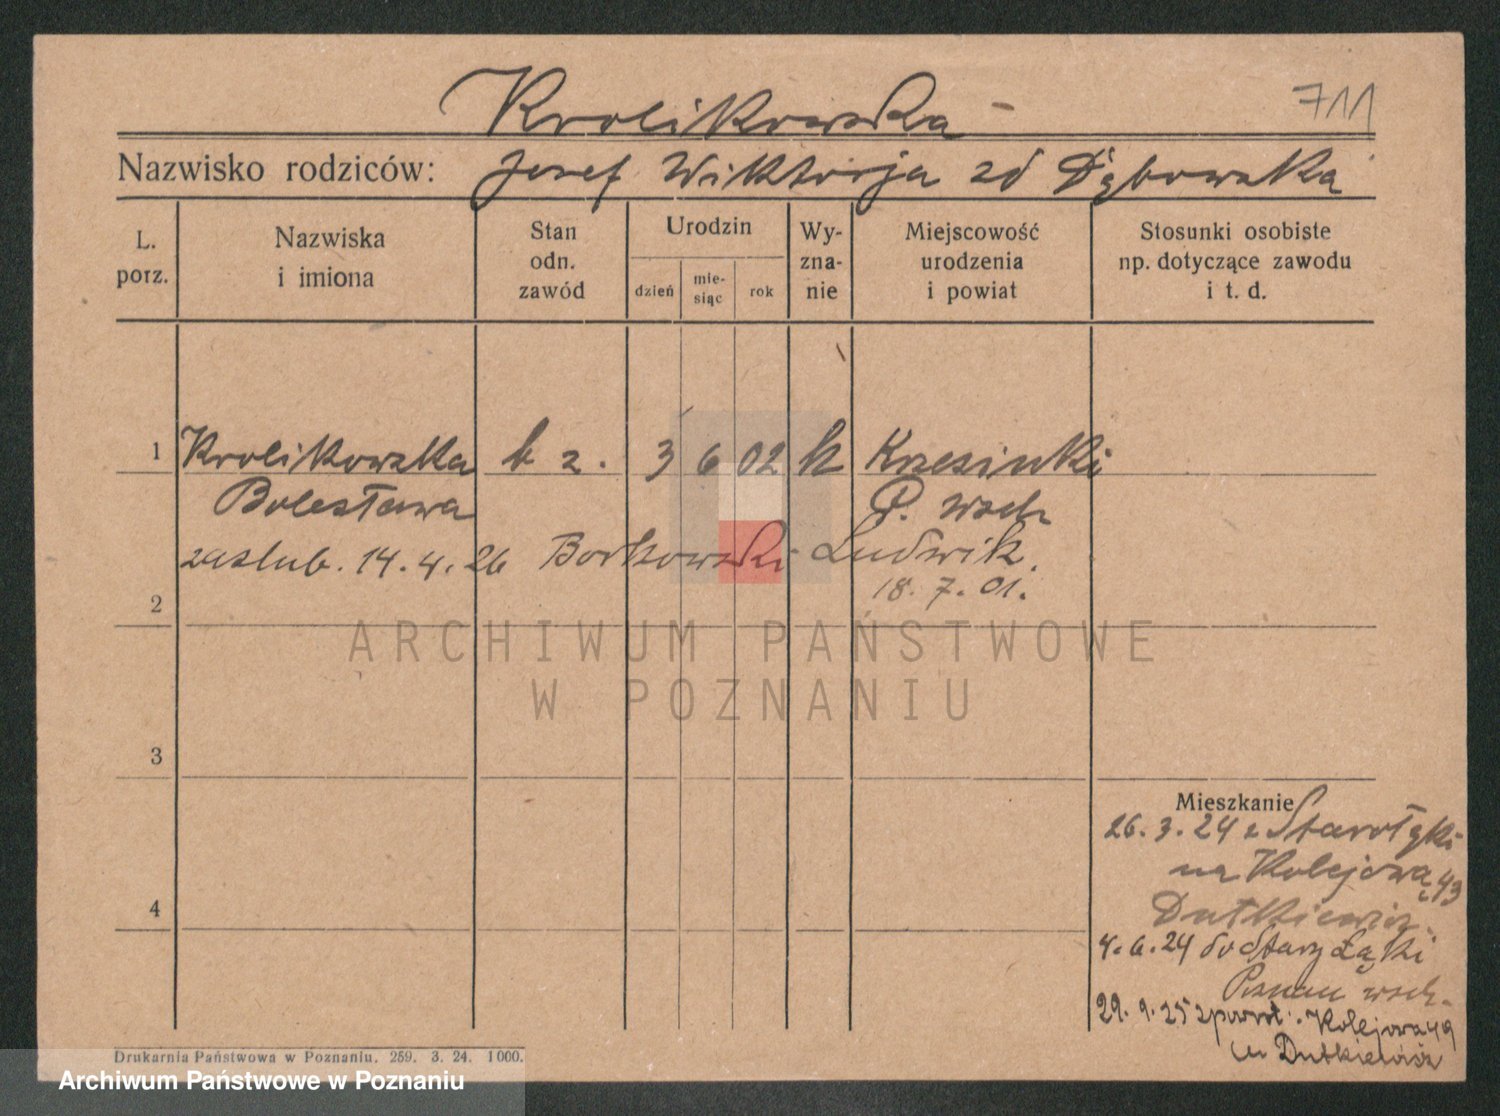 Krolikowska
711
Nazwisko rodziców: Josef Wiktorja zd Dąbowska
L. porz.
Nazwiska i imiona
Stan odn. zawód
Urodzin
dzień
mie-siąc
rok
Wy-zna-nie
Miejscowość urodzenia i powiat
Stosunki osobiste np. dotyczące zawodu i t. d.
1 Krolikowska b z. 3 6 02 k Krzesinki
Bolesława P. wsch
zaslub. 14. 4. 26 Borkowski Ludwik.
18. 7. 01.
2
3
4
Mieszkanie
26. 3. 24 z Starołęki
na Kolejową 43
Dutkiewicz.
4. 6. 24 do Stary Łąki
Poznan wsch.
29. 9. 25 z powrot. Kolejowa 49
u Dutkiewicz
ARCHIWUM PAŃSTWOWE
W POZNANIU
Drukarnia Państwowa w Poznaniu. 259. 3. 24. 1000.
Archiwum Państwowe w Poznaniu